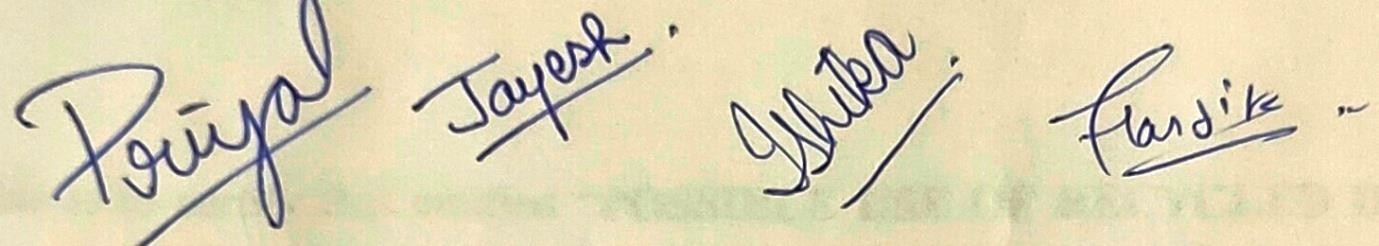 Priyal Jayesh. Ishika. Hardik ..